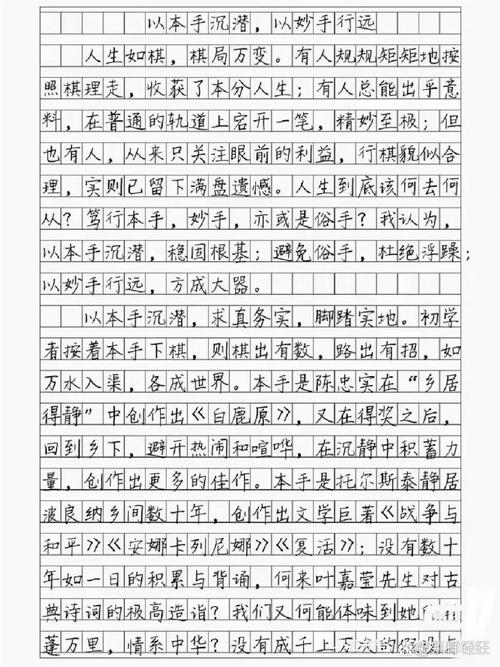 以本手沉潜，以妙手行远
人生如棋，棋局万变。有人规规矩矩地按
照棋理走，收获了本分人生；有人总能出乎意
料，在普通的轨道上宕开一笔，精妙至极；但
也有人，从来只关注眼前的利益，行棋貌似合
理，实则已留下满盘遗憾。人生到底该何去何
从？笃行本手，妙手，亦或是俗手？我认为，
以本手沉潜，稳固根基；避免俗手，杜绝浮躁；
以妙手行远，方成大器。
以本手沉潜，求真务实，脚踏实地。初学
者按着本手下棋，则棋出有数，路出有招，如
万水入渠，各成世界。本手是陈忠实在“乡居
得静”中创作出《白鹿原》，又在得奖之后，
回到乡下，避开热闹和喧哗，在沉静中积蓄力
量，创作出更多的佳作。本手是托尔斯泰静居
波良纳乡间数十年，创作出文学巨著《战争与
和平》《安娜卡列尼娜》《复活》；没有数十
年如一日的积累与背诵，何来叶嘉莹先生对古
典诗词的极高造诣？我们又何能体味到她
蓬万里，情系中华？没有成千上万